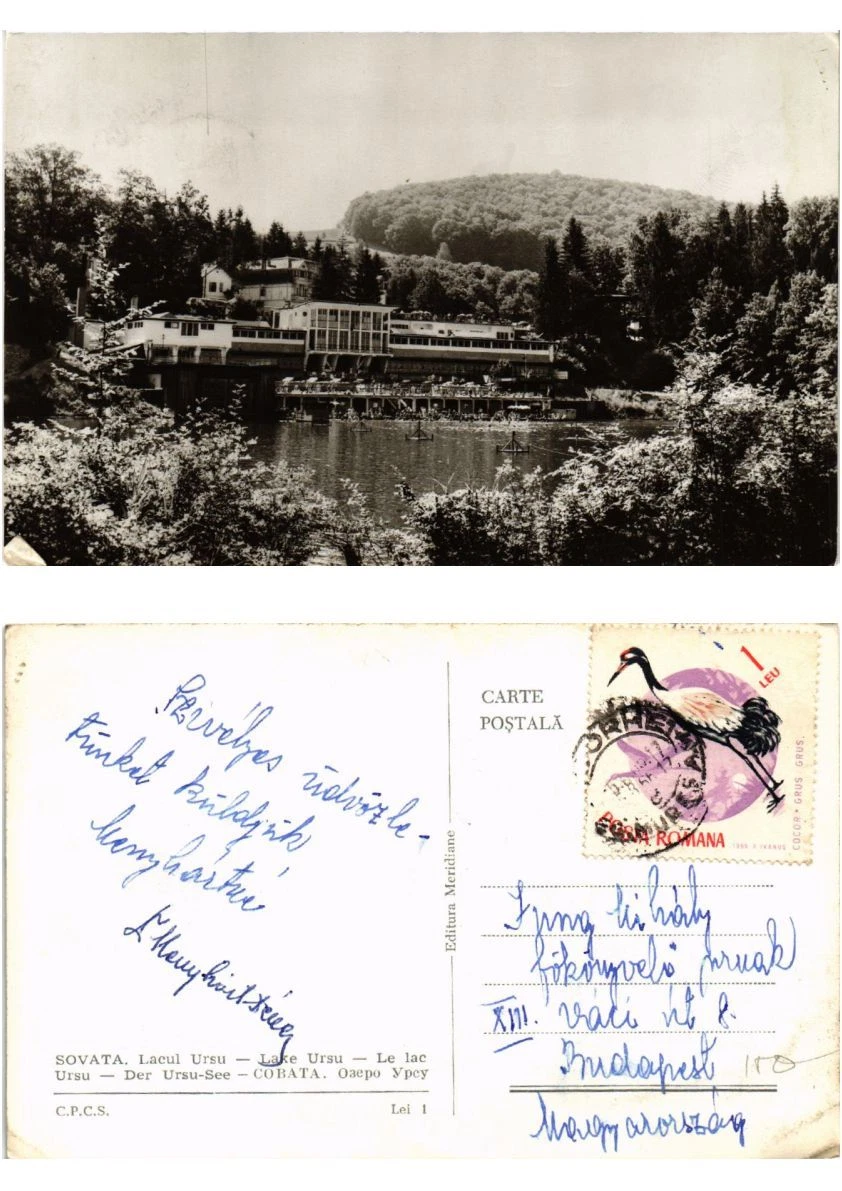 Szívélyes üdvözle-
tünket küldjük
Menyhártné
CARTE
POȘTALĂ
1
LEU
COCOR • GRUS GRUS.
POSTA ROMANA
Editura Meridiane
Mihály
főkönyvelő úrnak
XIII. Váci út 8.
Budapest
Magyarország
150
SOVATA. Lacul Ursu — Lake Ursu — Le lac
Ursu — Der Ursu-See — СОВАТА. Озеро Урсу
C.P.C.S.
Lei 1